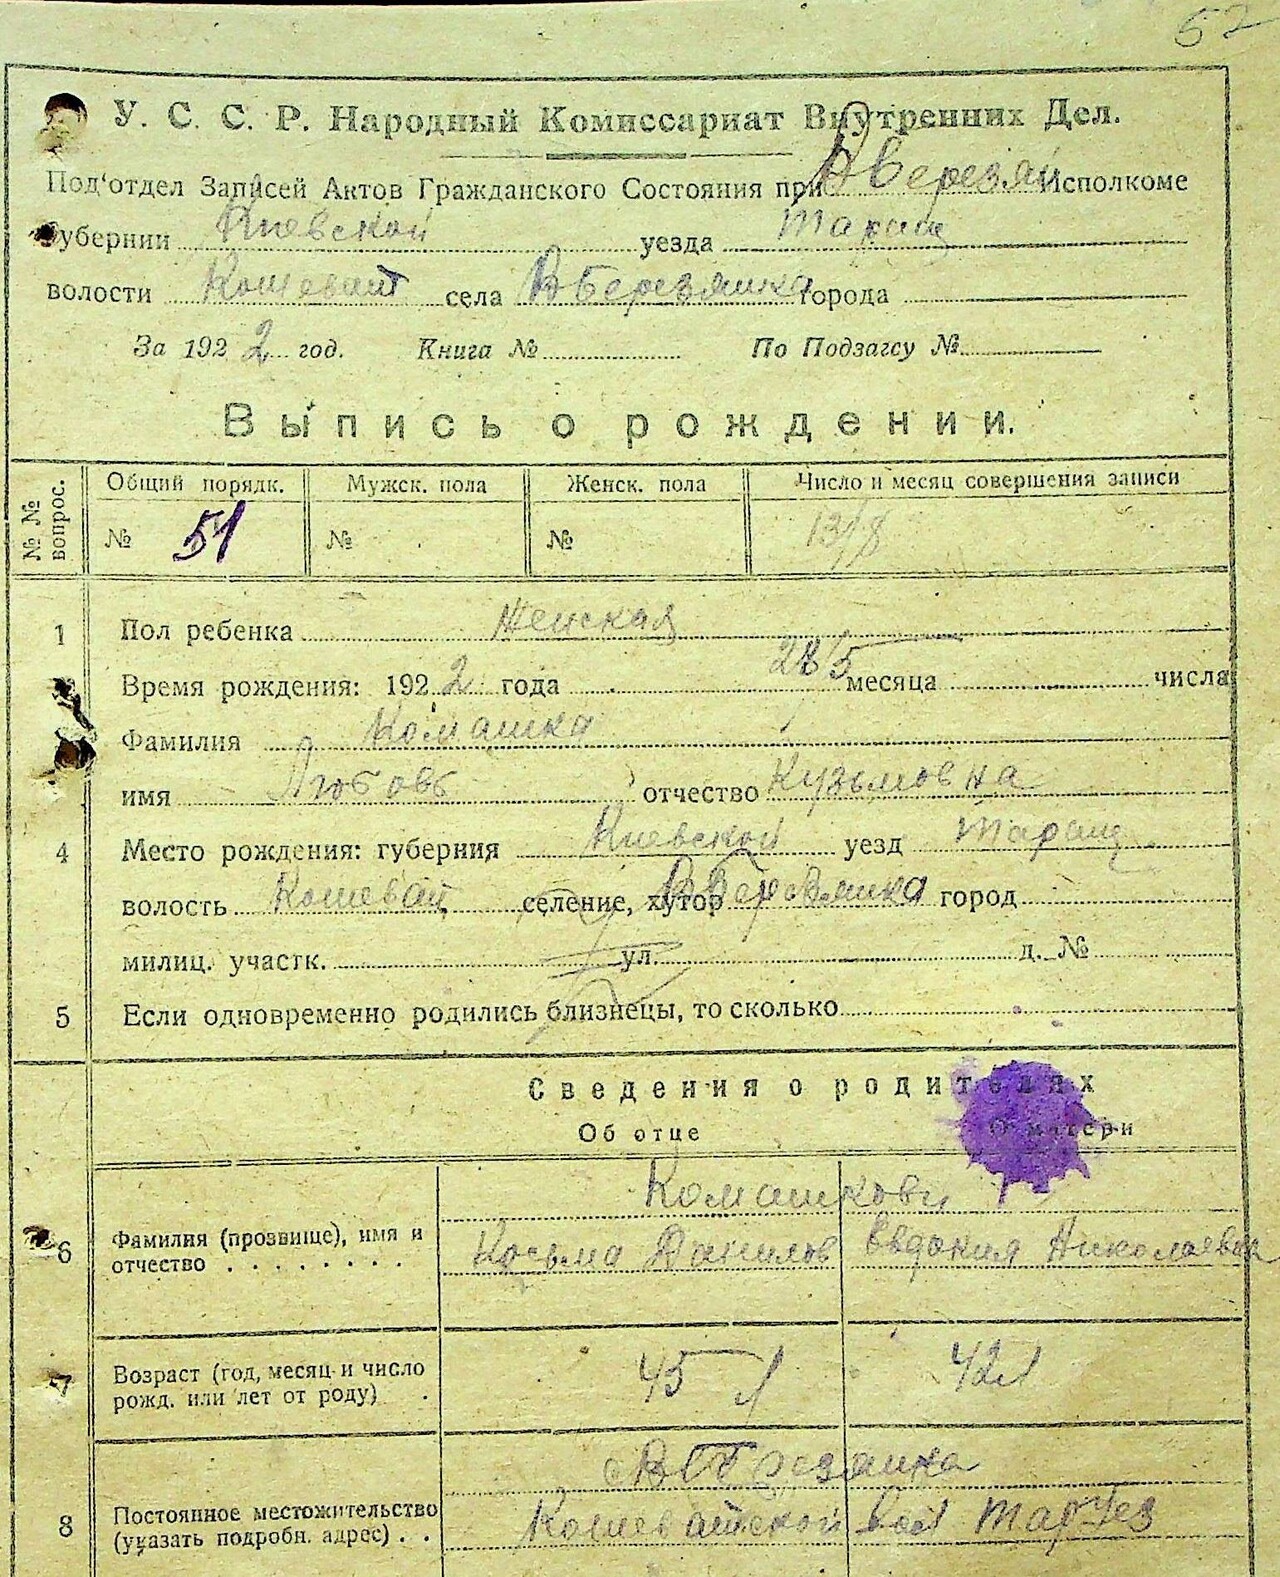 52
У. С. С. Р. Народный Комиссариат Внутренних Дел.
Под'отдел Записей Актов Гражданского Состояния при ВБерезян Исполкоме
Губернии Киевской уезда Таращ
волости Кошеват села ВБерезянка города
За 1922 год. Книга № По Подзагсу №
Выпись о рождении.
№ № вопрос. Общий порядк. Мужск. пола Женск. пола Число и месяц совершения записи
№ 51 № № 13/8
1 Пол ребенка Женская
Время рождения: 1922 года 28/5 месяца числа
Фамилия Комашка
имя Любовь отчество Кузьмовна
4 Место рождения: губерния Киевской уезд Таращ
волость Кошеват селение, хутор ВБерезянка город
милиц. участк. ул. д. №
5 Если одновременно родились близнецы, то сколько
Сведения о родителях
Об отце О матери
Комашкови
6 Фамилия (прозвище), имя и отчество . . . . . . . . Косьма Данилов Евдокия Николаевна
7 Возраст (год, месяц и число рожд. или лет от роду) . 45 л 42 л
ВБерезянка
8 Постоянное местожительство (указать подробн. адрес) . . Кошеватской вол Тар уез